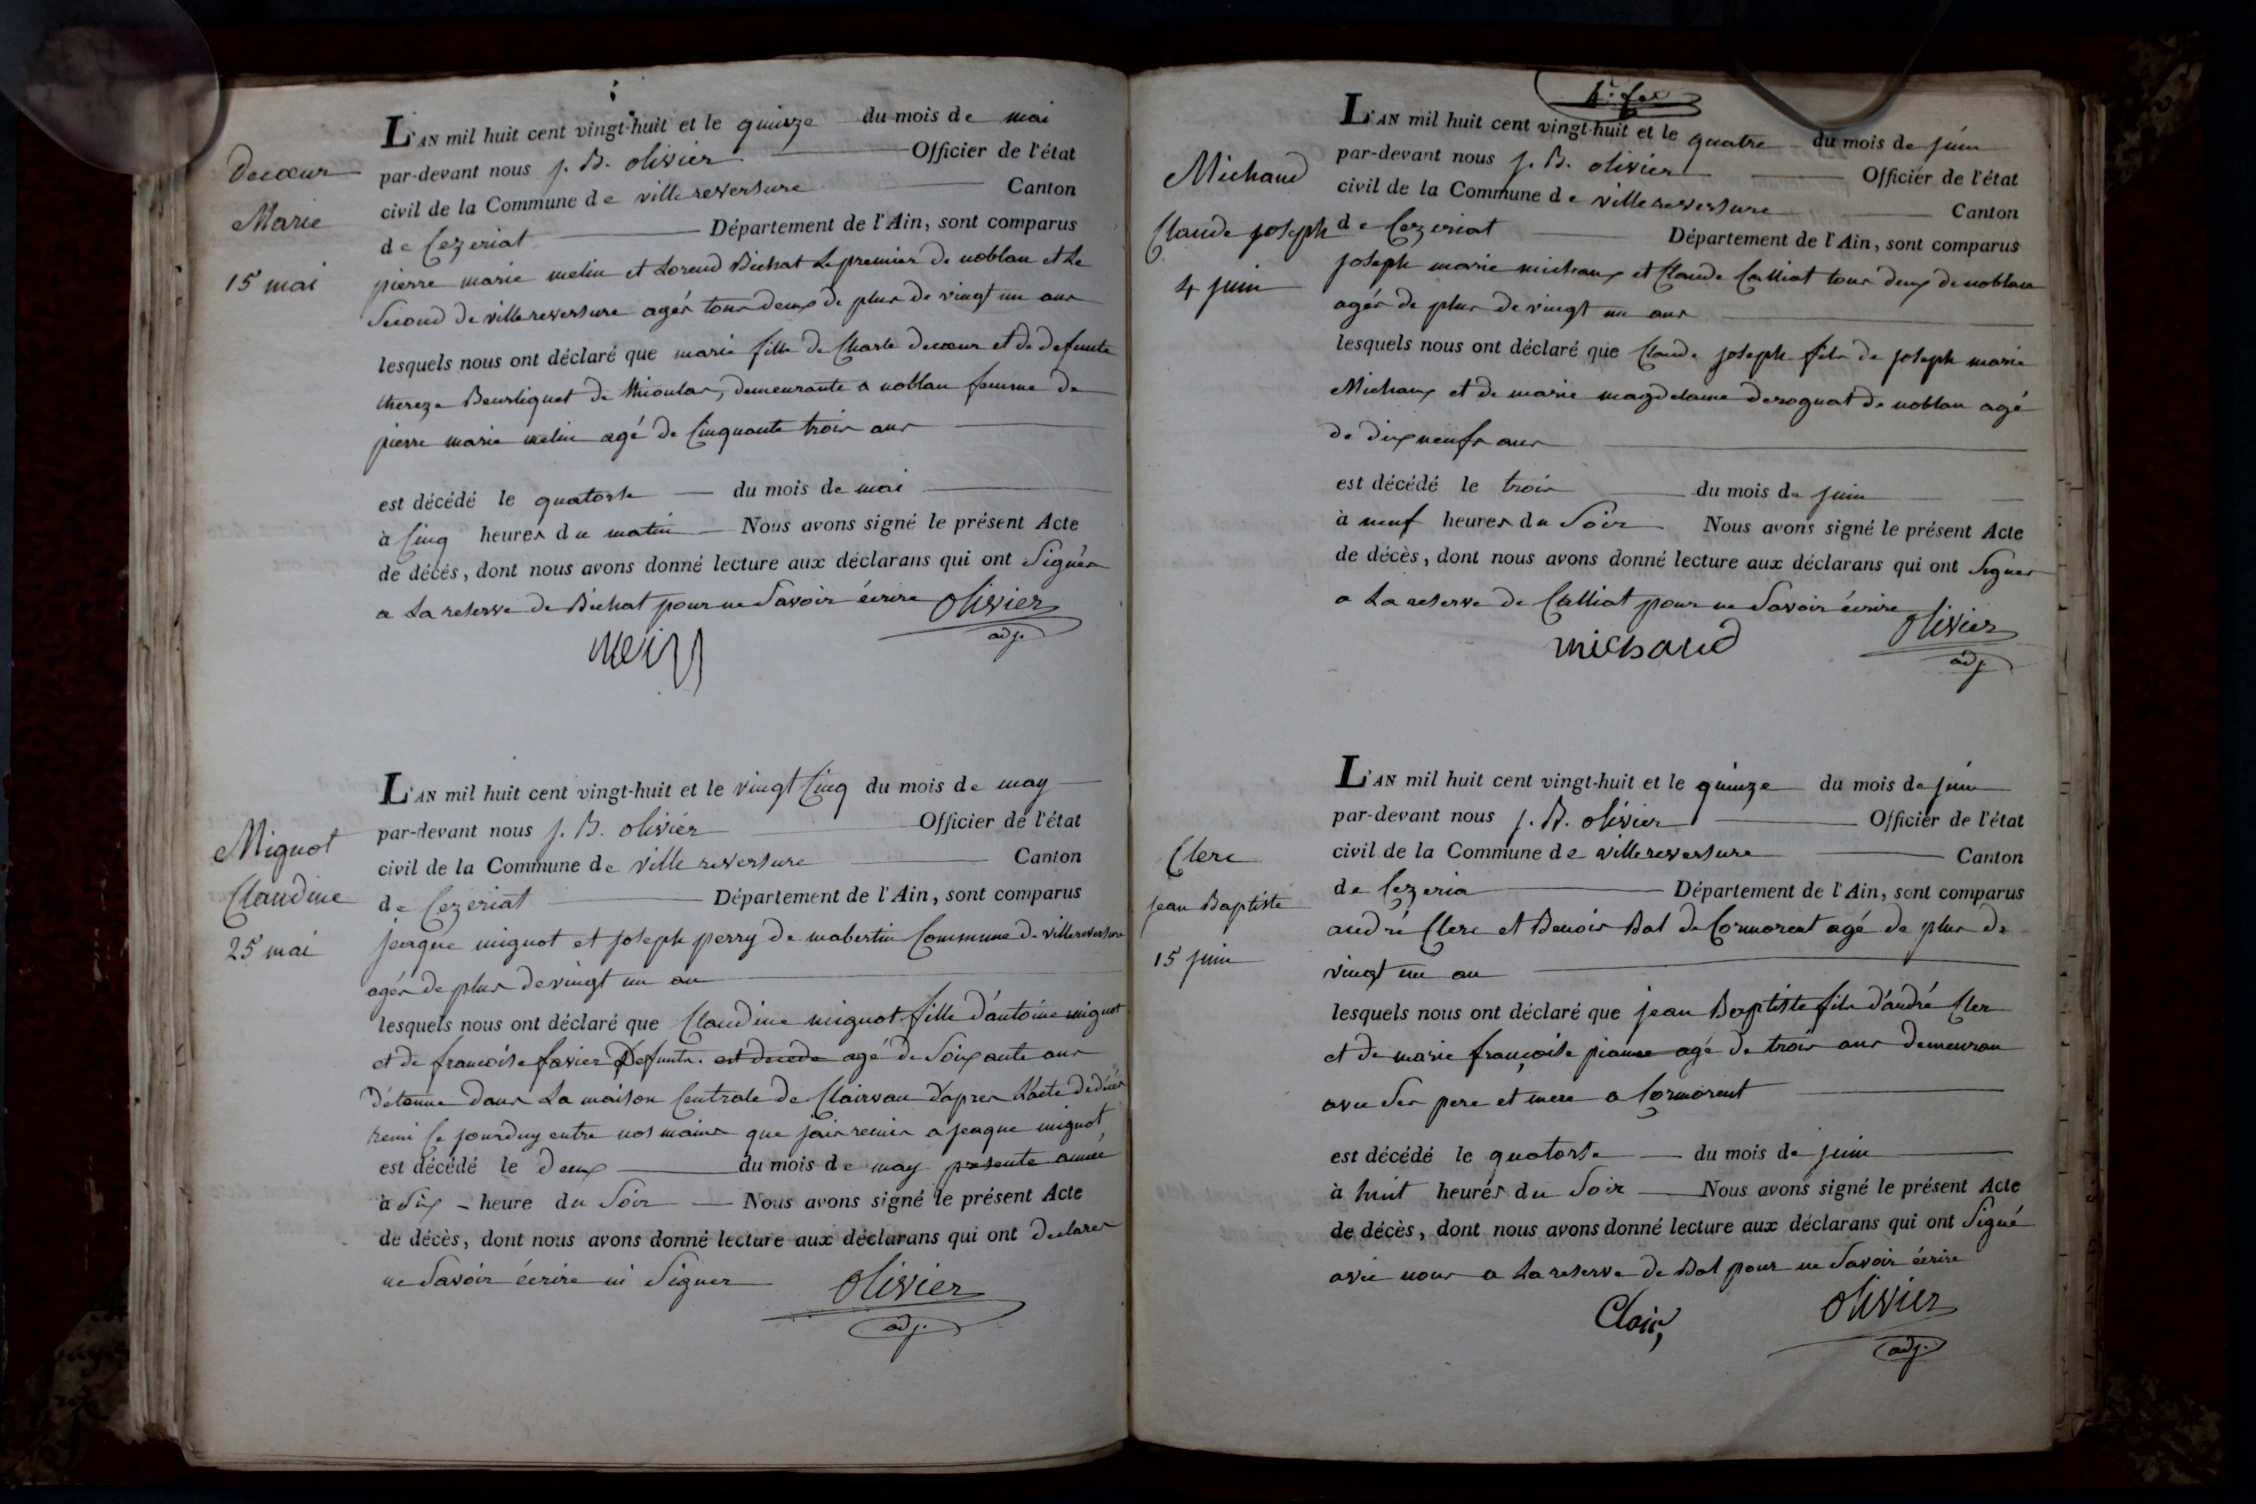 Decœur
Marie
15 mai
L'AN mil huit cent vingt-huit et le quinze du mois de mai
par-devant nous j. B. olivier Officier de l'état
civil de la Commune de villereversure Canton
de Cezeriat Département de l'Ain, sont comparus
pierre marie melin et Lorend Bichat Le premier de noblan et Le
Second de villereversure agés tous deux de plus de vingt un ans
lesquels nous ont déclaré que marie fille de Charle decœur et de defunte
thereze de demeurante a noblan femme de
pierre marie melin agé de Cinquante trois ans
est décédé le quatorse du mois de mai
à Cinq heures du matin Nous avons signé le présent Acte
de décès, dont nous avons donné lecture aux déclarans qui ont Signés
a La reserve de Bichat pour ne Savoir écrire olivier
adj.
Mignot
Claudine
25 mai
L'AN mil huit cent vingt-huit et le vingt Cinq du mois de may
par-devant nous j. B. olivier Officier de l'état
civil de la Commune de ville reversure Canton
de Cezeriat Département de l'Ain, sont comparus
jeaque mignot et joseph perry de mabertin Commune de villereversure
agés de plus de vingt un an
lesquels nous ont déclaré que Claudine mignot fille d'antoine mignot
et de francoise favier Defunte. est decede agé de Soixante ans
Détenue dans La maison Centrale de Clairvau d'apres L'acte de décés
remi Ce jourduy entre nos mains que jais remis a jeaque mignot
est décédé le deux du mois de may presente année
à Six heure du Soir Nous avons signé le présent Acte
de décès, dont nous avons donné lecture aux déclarans qui ont declarer
ne Savoir écrire ni Signer olivier
adj.
4.e fer
Michaud
Claude joseph
4 juin
L'AN mil huit cent vingt-huit et le quatre du mois de juin
par-devant nous j. B. olivier Officier de l'état
civil de la Commune de villereversure Canton
de Cezeriat Département de l'Ain, sont comparus
joseph marie michaux et Claude Calliat tous deux de noblan
agés de plus de vingt un ans
lesquels nous ont déclaré que Claude joseph fils de joseph marie
Michaux et de marie magdelaine deroguat de noblan agé
de dix neufs ans
est décédé le trois du mois de juin
à neuf heures du Soir Nous avons signé le présent Acte
de décès, dont nous avons donné lecture aux déclarans qui ont Signer
a La reserve de Calliat pour ne Savoir écrire olivier
michaud adj
Clerc
jean Baptiste
15 juin
L'AN mil huit cent vingt-huit et le quinze du mois de juin
par-devant nous j. B. olivier Officier de l'état
civil de la Commune de villereversure Canton
de Cezeria Département de l'Ain, sont comparus
andré Clerc et Benois Bal de Cormorent agé de plus de
vingt un an
lesquels nous ont déclaré que jean Baptiste fils d'andré Cler
et de marie françoise agé de trois ans demeuran
avec Ses pere et mere a Cormorent
est décédé le quatorse du mois de juin
à huit heures du Soir Nous avons signé le présent Acte
de décès, dont nous avons donné lecture aux déclarans qui ont Signé
avec nous a La reserve de Bal pour ne Savoir écrire
Clair olivier
adj.